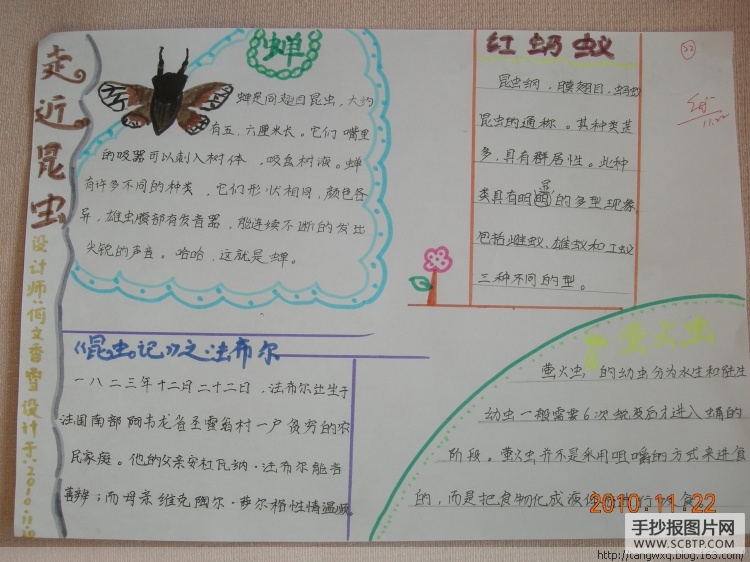 走近昆虫
设计师:何文香雪 设计于:2010.11.20
蝉
蝉是同翅目昆虫,大约
有五、六厘米长。它们嘴里
的吸器可以刺入树体,吸食树液。蝉
有许多不同的种类,它们形状相同,颜色各
异,雄虫腹部有发音器,能连续不断的发出
尖锐的声音。哈哈,这就是蝉。
红蚂蚁
昆虫纲,膜翅目,蚂蚁
昆虫的通称。其种类甚
多,具有群居性。此种
类具有明显的多型现象,
包括雌蚁、雄蚁和工蚁
三种不同的型。
22
11.22
《昆虫记》之:法布尔
一八二三年十二月二十二日,法布尔出生于
法国南部阿韦龙省圣雷翁村一户贫穷的农
民家庭。他的父亲安杜瓦纳·法布尔能言
善辩;而母亲维克陶尔·萨尔格性情温顺。
萤火虫
萤火虫的幼虫分为水生和陆生
幼虫一般需要6次蜕皮后才进入蛹的
阶段。萤火虫并不是采用咀嚼的方式来进食
的,而是把食物化成液体
2010.11.22
手抄报图片网
WWW.SCBTP.COM
http://tangwxq.blog.163.com/